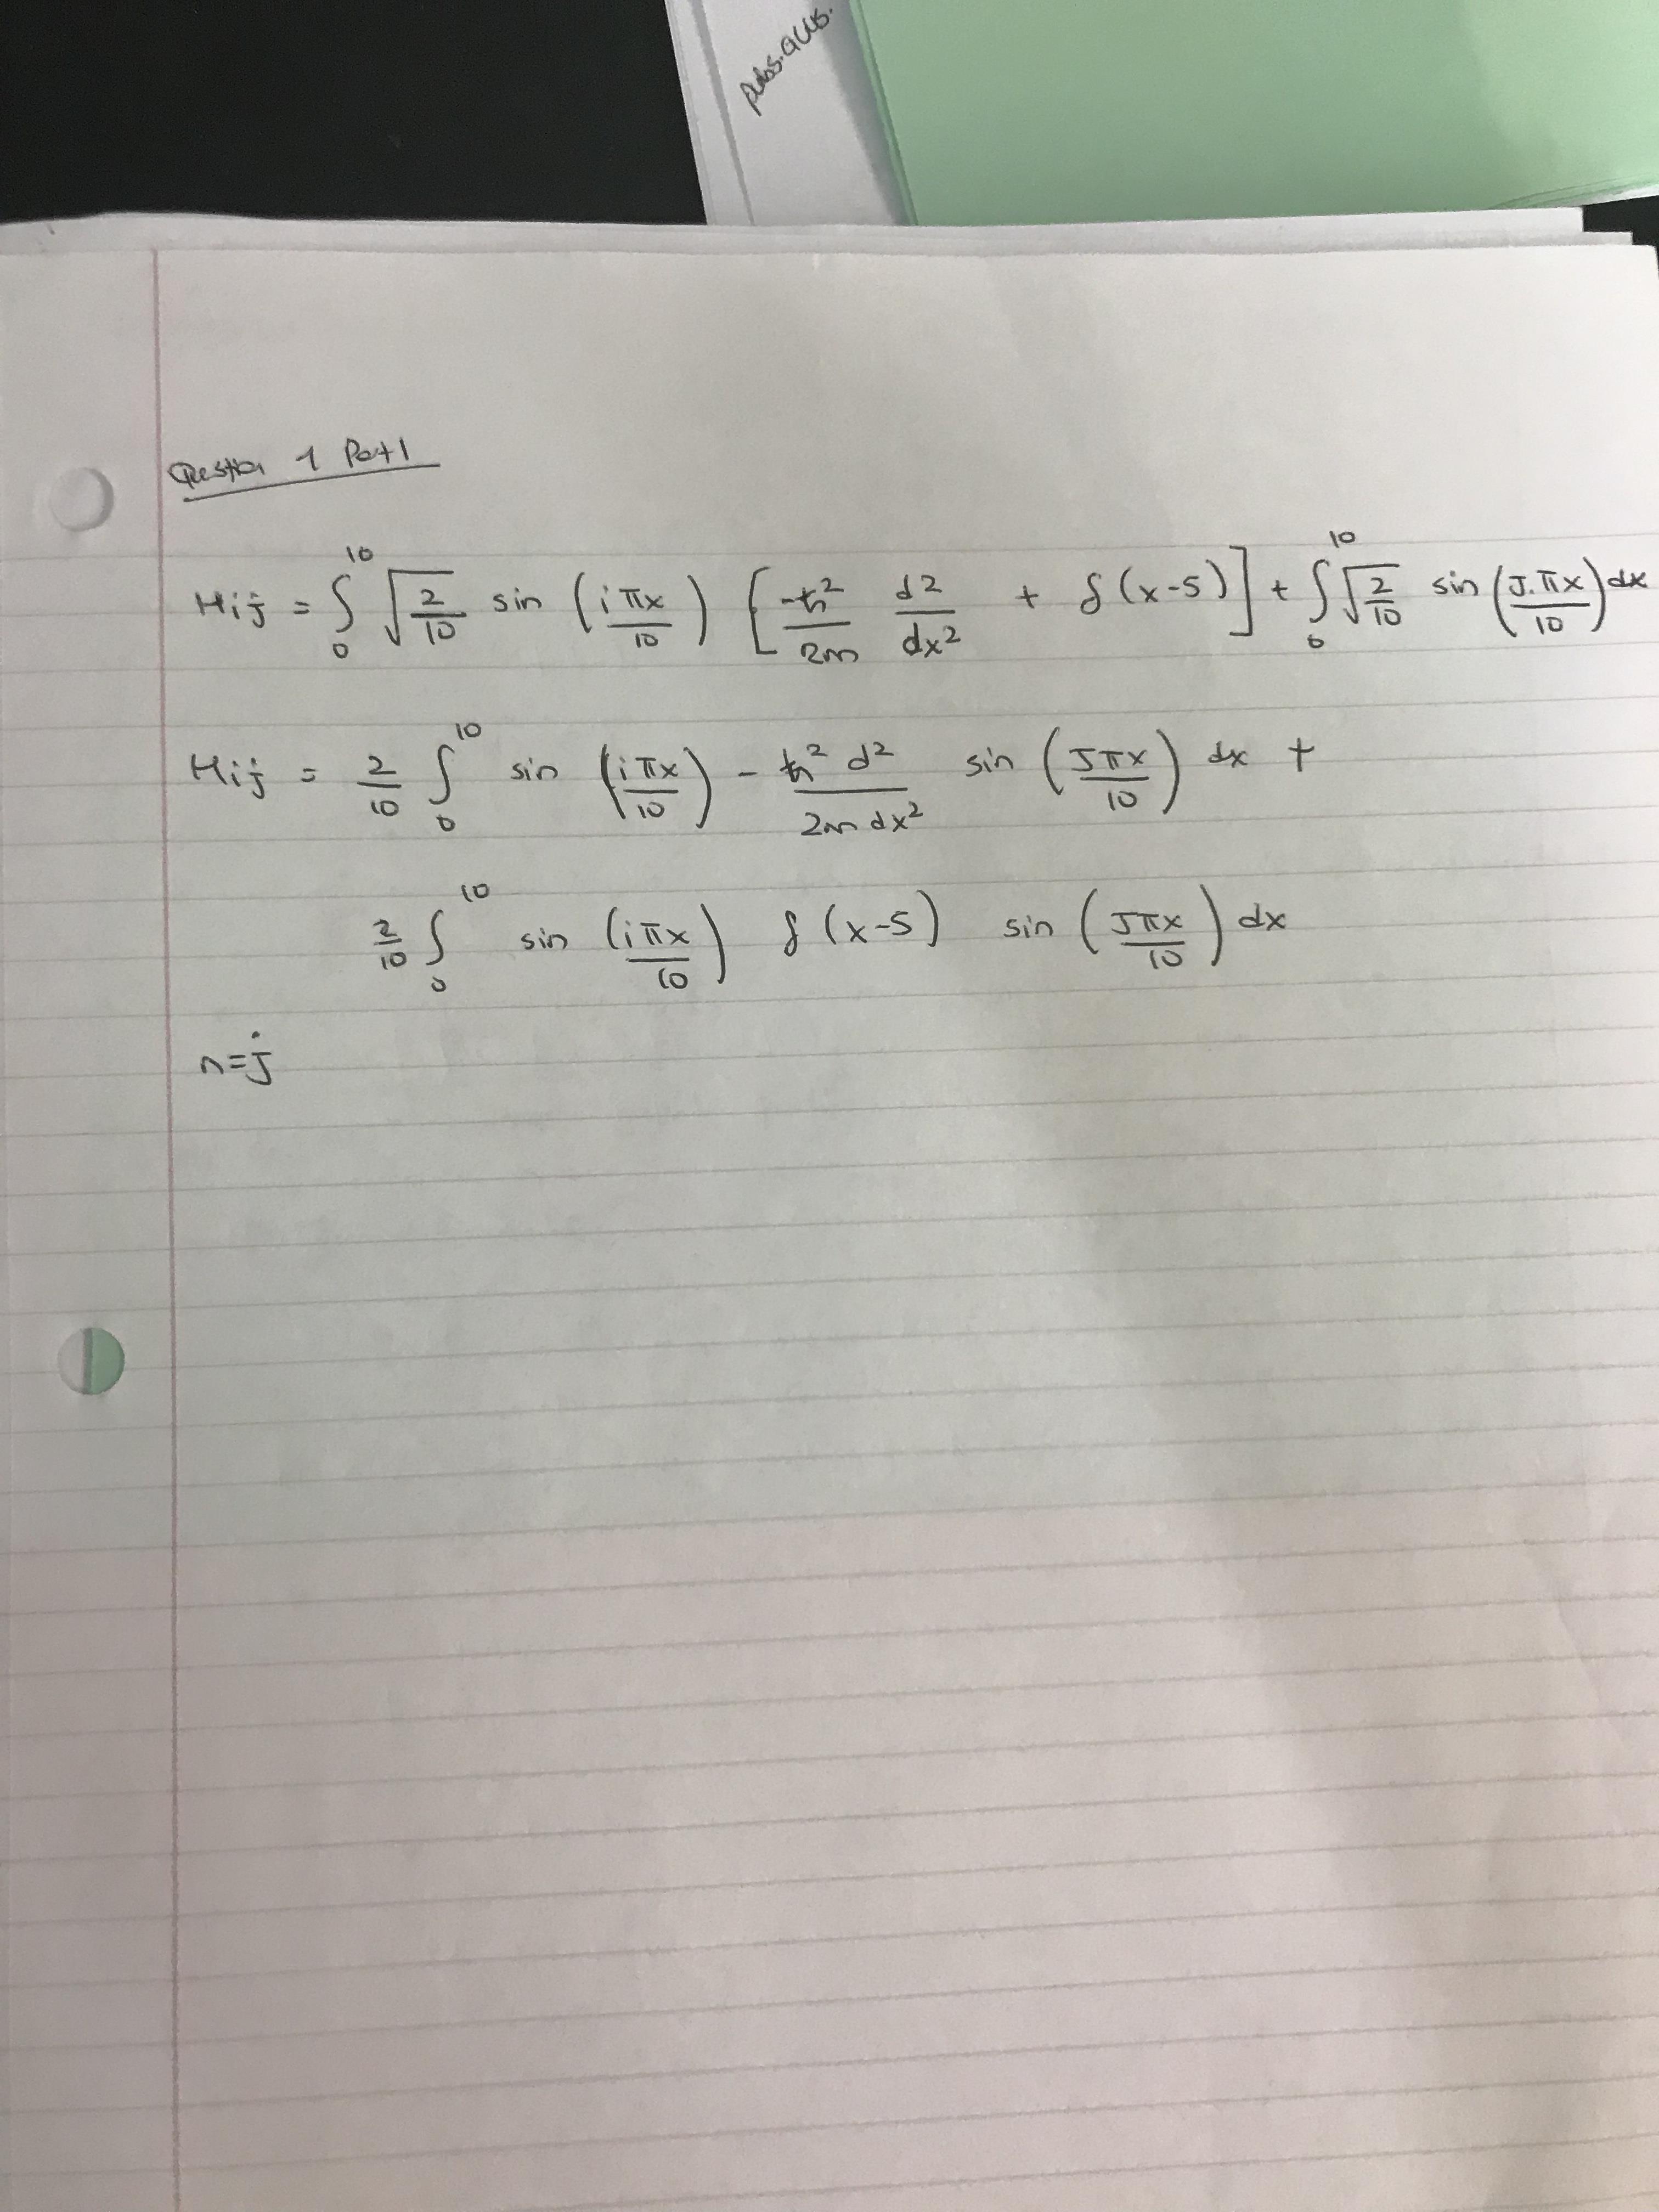 Question 1 Part 1
Hij = ∫₀¹⁰ √(2/10) sin (iπx/10) [-ħ²/2m d²/dx² + δ(x-5)] + ∫₀¹⁰ √(2/10) sin (J.πx/10) dx
Hij = 2/10 ∫₀¹⁰ sin (iπx/10) - ħ² d²/2m dx² sin (Jπx/10) dx +
2/10 ∫₀¹⁰ sin (iπx/10) δ (x-5) sin (Jπx/10) dx
n=j